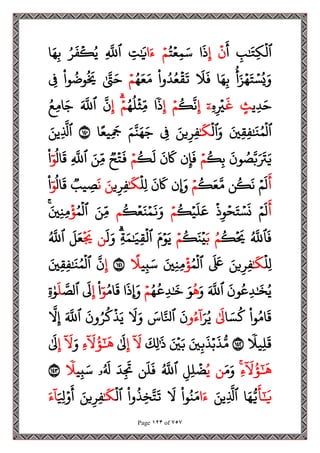 ٱلْكِتَٰبِ أَنْ إِذَا سَمِعْتُمْ ءَايَٰتِ ٱللَّهِ يُكْفَرُ بِهَا
وَيُسْتَهْزَأُ بِهَا فَلَا تَقْعُدُوا۟ مَعَهُمْ حَتَّىٰ يَخُوضُوا۟ فِى
حَدِيثٍ غَيْرِهِۦٓ ۚ إِنَّكُمْ إِذًا مِّثْلُهُمْ ۗ إِنَّ ٱللَّهَ جَامِعُ
ٱلْمُنَٰفِقِينَ وَٱلْكَٰفِرِينَ فِى جَهَنَّمَ جَمِيعًا ١٤٠ ٱلَّذِينَ
يَتَرَبَّصُونَ بِكُمْ فَإِن كَانَ لَكُمْ فَتْحٌ مِّنَ ٱللَّهِ قَالُوٓا۟
أَلَمْ نَكُن مَّعَكُمْ وَإِن كَانَ لِلْكَٰفِرِينَ نَصِيبٌ قَالُوٓا۟
أَلَمْ نَسْتَحْوِذْ عَلَيْكُمْ وَنَمْنَعْكُم مِّنَ ٱلْمُؤْمِنِينَ ۚ
فَٱللَّهُ يَحْكُمُ بَيْنَكُمْ يَوْمَ ٱلْقِيَٰمَةِ ۗ وَلَن يَجْعَلَ ٱللَّهُ
لِلْكَٰفِرِينَ عَلَى ٱلْمُؤْمِنِينَ سَبِيلًا ١٤١ إِنَّ ٱلْمُنَٰفِقِينَ
يُخَٰدِعُونَ ٱللَّهَ وَهُوَ خَٰدِعُهُمْ وَإِذَا قَامُوٓا۟ إِلَى ٱلصَّلَوٰةِ
قَامُوا۟ كُسَالَىٰ يُرَآءُونَ ٱلنَّاسَ وَلَا يَذْكُرُونَ ٱللَّهَ إِلَّا
قَلِيلًا ١٤٢ مُّذَبْذَبِينَ بَيْنَ ذَٰلِكَ لَآ إِلَىٰ هَٰٓؤُلَآءِ وَلَآ إِلَىٰ
هَٰٓؤُلَآءِ ۚ وَمَن يُضْلِلِ ٱللَّهُ فَلَن تَجِدَ لَهُۥ سَبِيلًا ١٤٣
يَٰٓأَيُّهَا ٱلَّذِينَ ءَامَنُوا۟ لَا تَتَّخِذُوا۟ ٱلْكَٰفِرِينَ أَوْلِيَآءَ
Page ١٢٣ of ٧٥٧